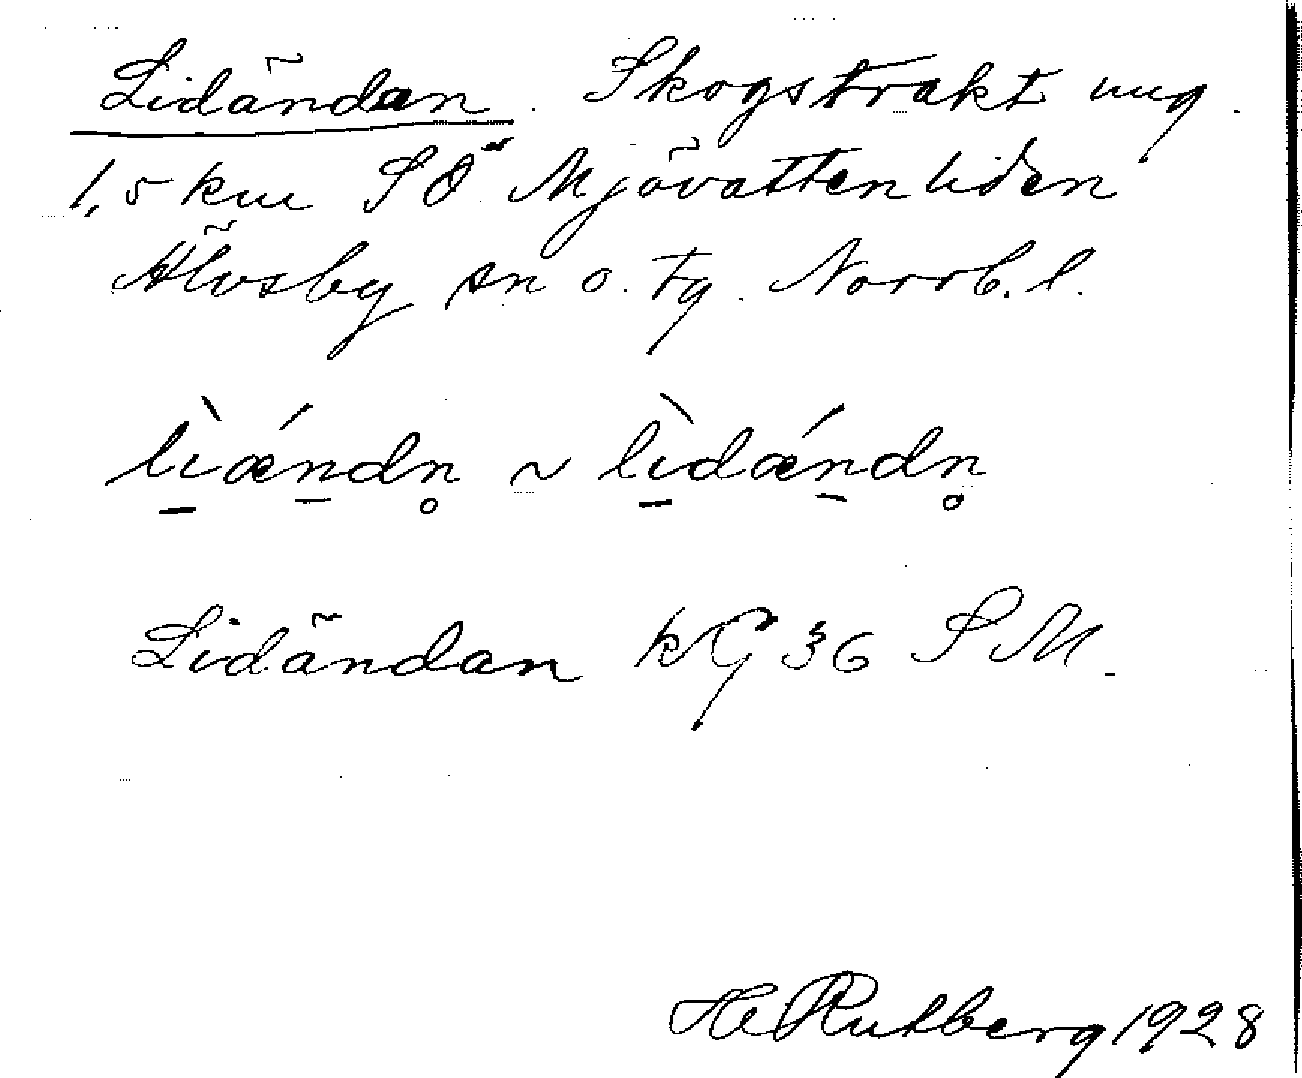 Lidändan. Skogstrakt ung.
1,5 km SÖ Mjövattenliden
Älvsby sn o. tg. Norrb. l.
lìǽndn̥ ~ lìdǽndn̥
Lidändan kG 36 SM.
He Rutberg 1928